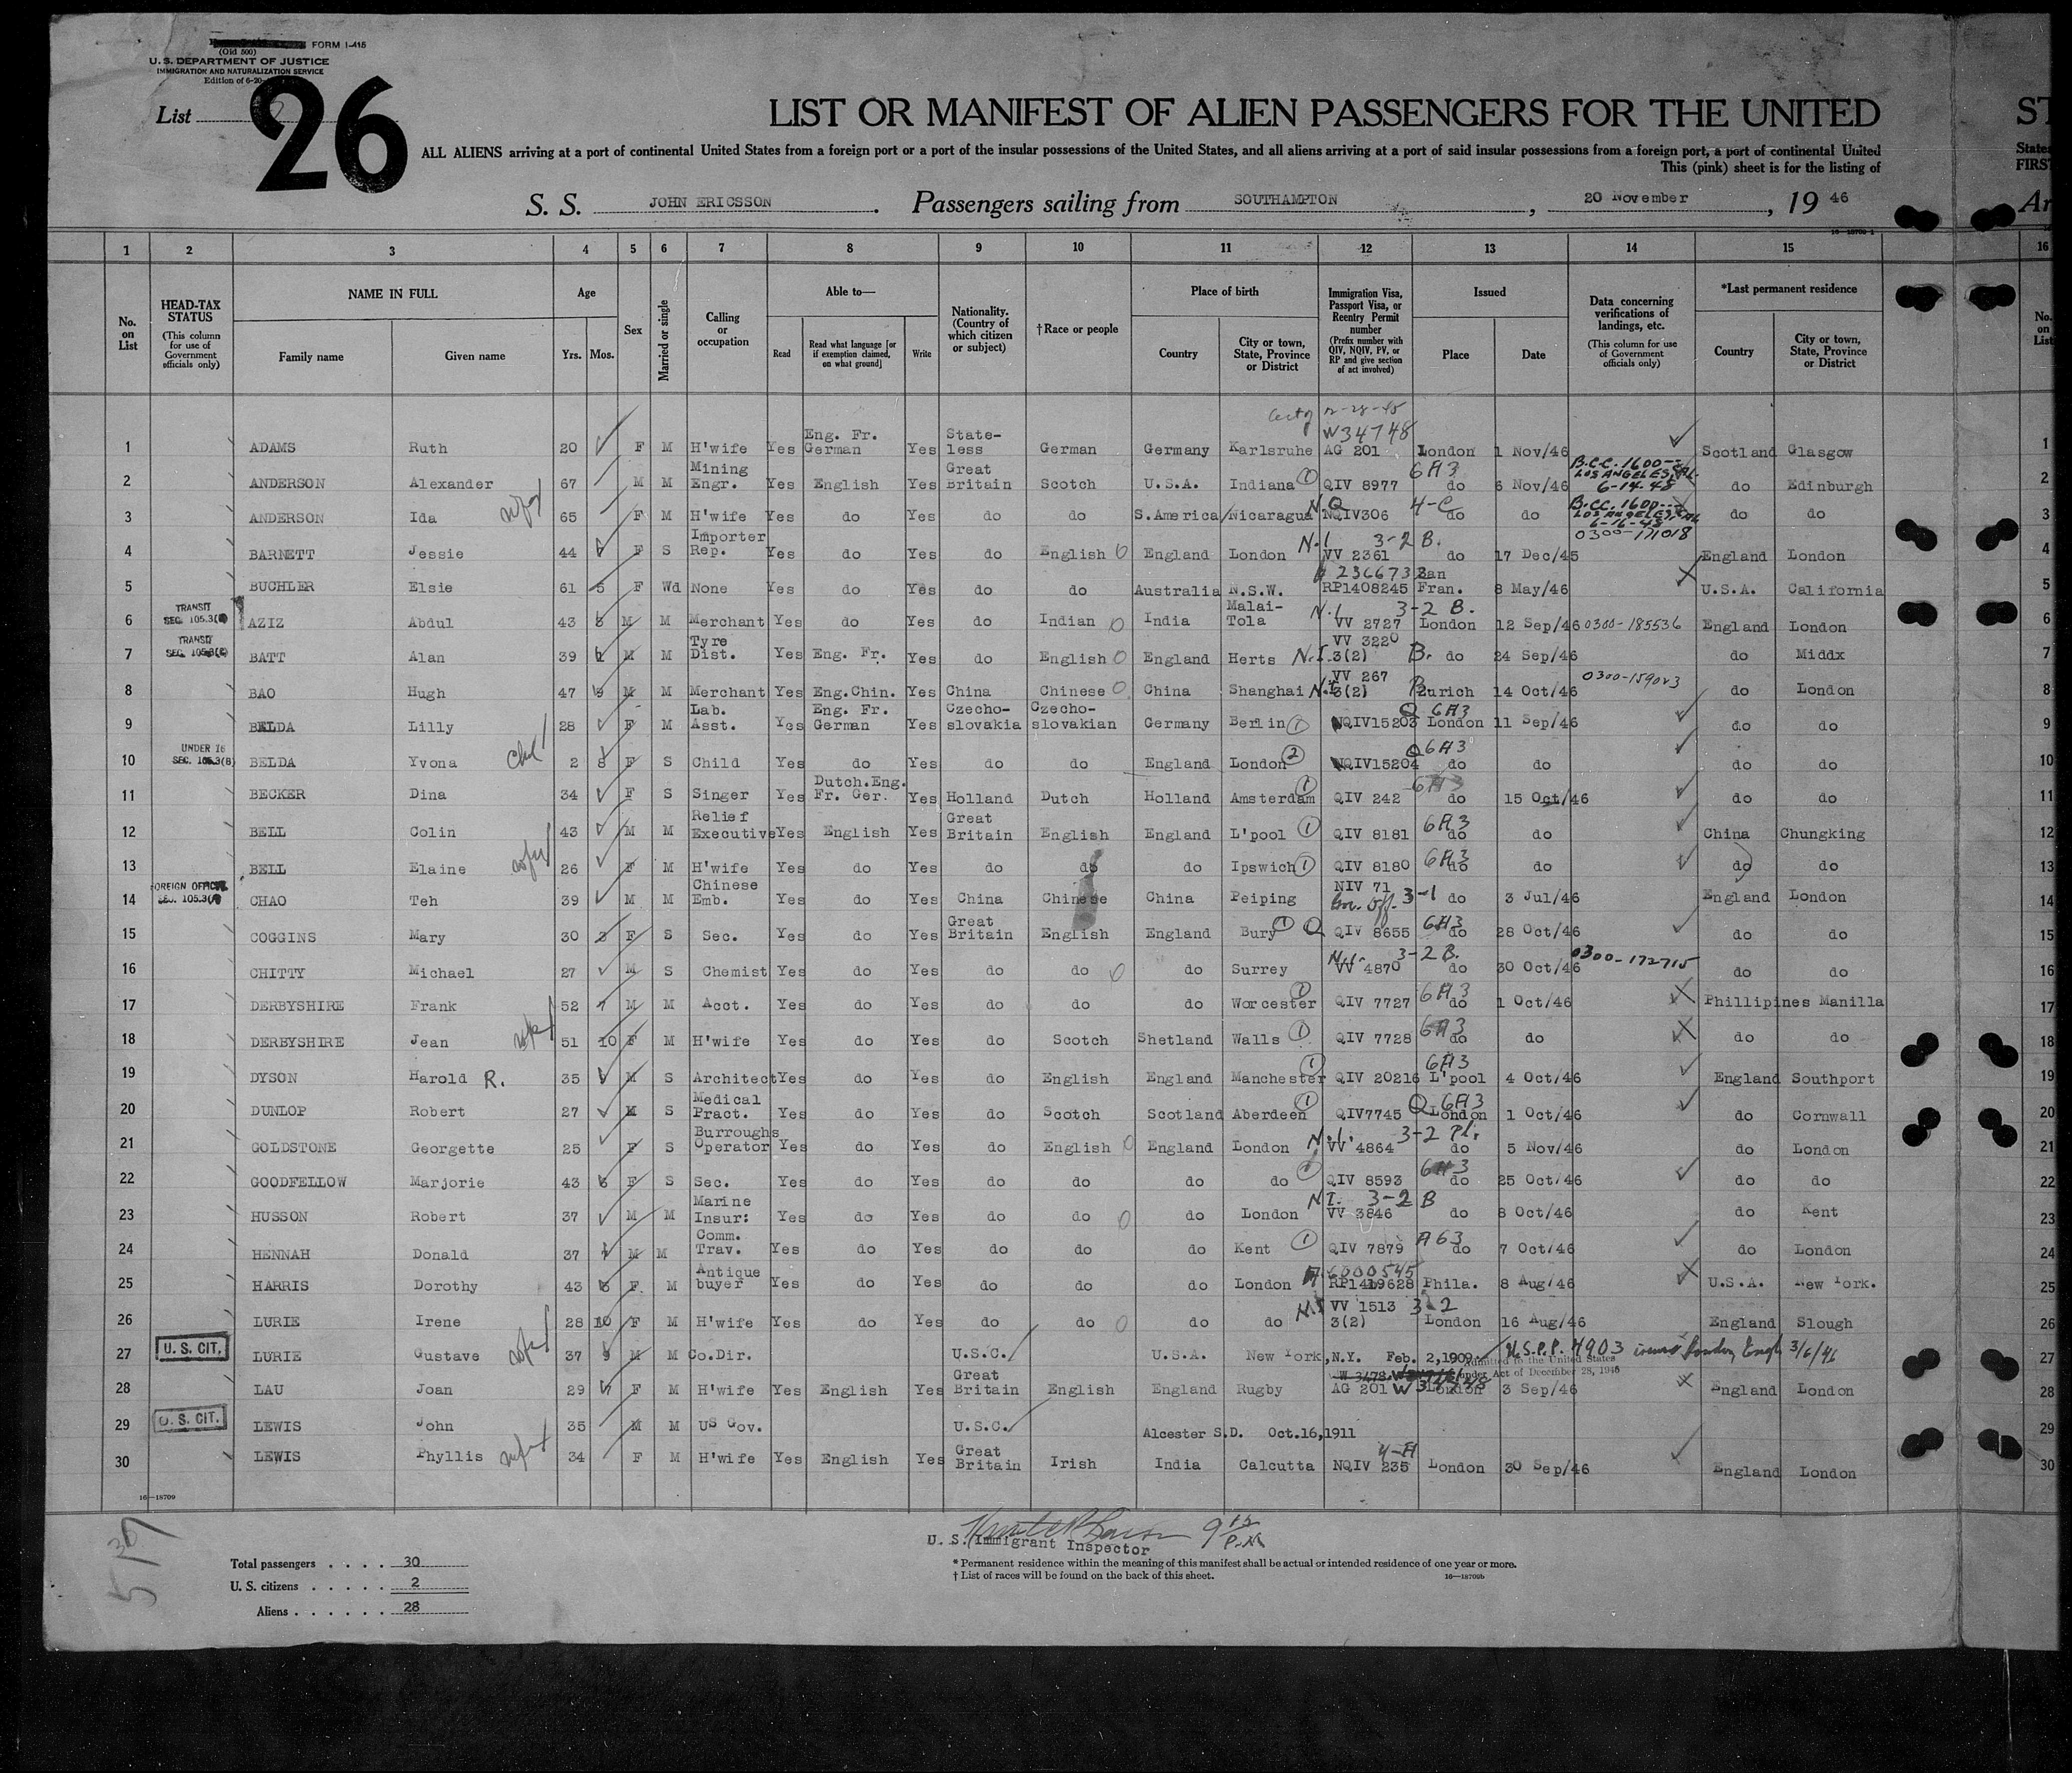 FORM I-415
(Old 500)
U. S. DEPARTMENT OF JUSTICE
IMMIGRATION AND NATURALIZATION SERVICE
Edition of 6-20-
List
26
LIST OR MANIFEST OF ALIEN PASSENGERS FOR THE UNITED
ST
ALL ALIENS arriving at a port of continental United States from a foreign port or a port of the insular possessions of the United States, and all aliens arriving at a port of said insular possessions from a foreign port, a port of continental United
States
This (pink) sheet is for the listing of
FIRST
S. S. JOHN ERICSSON. Passengers sailing from SOUTHAMPTON, 20 November, 19 46
Ar
1 2 3 4 5 6 7 8 9 10 11 12 13 14 15 16
No. on List
HEAD-TAX STATUS (This column for use of Government officials only)
NAME IN FULL
Family name Given name
Age Yrs. Mos.
Sex
Married or single
Calling or occupation
Able to—
Read Read what language [or if exemption claimed, on what ground] Write
Nationality. (Country of which citizen or subject)
†Race or people
Place of birth
Country City or town, State, Province or District
Immigration Visa, Passport Visa, or Reentry Permit number (Prefix number with QIV, NQIV, PV, or RP and give section of act involved)
Issued
Place Date
Data concerning verifications of landings, etc. (This column for use of Government officials only)
*Last permanent residence
Country City or town, State, Province or District
12-28-45
1 ADAMS Ruth 20 F M H'wife Yes Eng. Fr. German Yes State-less German Germany Karlsruhe W34748 AG 201 London 1 Nov/46 Scotland Glasgow 1
2 ANDERSON Alexander 67 M M Mining Engr. Yes English Yes Great Britain Scotch U.S.A. Indiana QIV 8977 6A3 do 6 Nov/46 B.C.C. 1600- LOS ANGELES, CAL. 6-14-48 do Edinburgh 2
3 ANDERSON Ida wife 65 F M H'wife Yes do Yes do do S.America/Nicaragua NQIV306 4-C do do B.C.C. 1600- LOS ANGELES, CAL 6-16-48 do do 3
4 BARNETT Jessie 44 F S Importer Rep. Yes do Yes do English England London N.I. 3-2 B. VV 2361 do 17 Dec/45 0300-171018 England London 4
5 BUCHLER Elsie 61 5 F Wd None Yes do Yes do do Australia N.S.W. RP1408245 San Fran. 8 May/46 U.S.A. California 5
6 TRANSIT SEC. 105.3( AZIZ Abdul 43 M M Merchant Yes do Yes do Indian India Malai-Tola N.I. 3-2 B. VV 2727 London 12 Sep/46 0300-185536 England London 6
7 TRANSIT SEC. 105.3( BATT Alan 39 M M Tyre Dist. Yes Eng. Fr. Yes do English England Herts N.I. VV 3220 3(2) B. do 24 Sep/46 do Middx 7
8 BAO Hugh 47 M M Merchant Yes Eng.Chin. Yes China Chinese China Shanghai N.I. VV 267 3(2) Zurich 14 Oct/46 0300-159023 do London 8
9 BELDA Lilly 28 F M Lab. Asst. Yes Eng. Fr. German Yes Czecho-slovakia Czecho-slovakian Germany Berlin 1 QIV15203 6A3 London 11 Sep/46 do do 9
10 UNDER 16 SEC. 105.3(8) BELDA Yvona 2 8 F S Child Yes do Yes do do England London 2 QIV15204 6A3 do do do do 10
11 BECKER Dina 34 F S Singer Yes Dutch.Eng. Fr. Ger. Yes Holland Dutch Holland Amsterdam 1 QIV 242 6A3 do 15 Oct/46 do do 11
12 BELL Colin 43 M M Relief Executive Yes English Yes Great Britain English England L'pool 1 QIV 8181 6A3 do do China Chungking 12
13 BELL Elaine wife 26 F M H'wife Yes do Yes do do do Ipswich 1 QIV 8180 6A3 do do do do 13
14 FOREIGN OFFICIAL SEC. 105.3( CHAO Teh 39 M M Chinese Emb. Yes do Yes China Chinese China Peiping NIV 71 Gov. Off. 3-1 do 3 Jul/46 England London 14
15 COGGINS Mary 30 3 F S Sec. Yes do Yes Great Britain English England Bury 1 QIV 8655 6A3 do 28 Oct/46 do do 15
16 CHITTY Michael 27 M S Chemist Yes do Yes do do do Surrey N.I. 3-2 B. VV 4870 do 30 Oct/46 0300-172715 do do 16
17 DERBYSHIRE Frank 52 7 M M Acct. Yes do Yes do do do Worcester 1 QIV 7727 6A3 do 1 Oct/46 Phillipines Manilla 17
18 DERBYSHIRE Jean wife 51 10 F M H'wife Yes do Yes do Scotch Shetland Walls 1 QIV 7728 6A3 do do do do 18
19 DYSON Harold R. 35 M S Architect Yes do Yes do English England Manchester 1 QIV 20216 6A3 L'pool 4 Oct/46 England Southport 19
20 DUNLOP Robert 27 M S Medical Pract. Yes do Yes do Scotch Scotland Aberdeen 1 QIV7745 6A3 London 1 Oct/46 do Cornwall 20
21 GOLDSTONE Georgette 25 F S Burroughs Operator Yes do Yes do English England London N.I. 3-2 Pl. VV 4864 do 5 Nov/46 do London 21
22 GOODFELLOW Marjorie 43 F S Sec. Yes do Yes do do do do 1 QIV 8593 6A3 do 25 Oct/46 do do 22
23 HUSSON Robert 37 M M Marine Insur: Yes do Yes do do do London N.I. 3-2 B VV 3846 do 8 Oct/46 do Kent 23
24 HENNAH Donald 37 M M Comm. Trav. Yes do Yes do do do Kent 1 QIV 7879 A63 do 7 Oct/46 do London 24
25 HARRIS Dorothy 43 F M Antique buyer Yes do Yes do do do London RP1419628 Phila. 8 Aug/46 U.S.A. New York. 25
26 LURIE Irene 28 10 F M H'wife Yes do Yes do do do do N.I. VV 1513 3-2 3(2) London 16 Aug/46 England Slough 26
27 U. S. CIT. LURIE Gustave 37 9 M M Co.Dir. U.S.C. U.S.A. New York, N.Y. Feb. 2,1909 U.S.P.P. 4903 issued London, Engl 3/6/46 27
Admitted to the United States under Act of December 28, 1945
28 LAU Joan 29 F M H'wife Yes English Yes Great Britain English England Rugby AG 201 London 3 Sep/46 England London 28
29 U. S. CIT. LEWIS John 35 M M US Gov. U.S.C. Alcester S.D. Oct.16,1911 29
30 LEWIS Phyllis wife 34 F M H'wife Yes English Yes Great Britain Irish India Calcutta NQIV 235 4-A London 30 Sep/46 England London 30
16—18709
U. S. Immigrant Inspector
9 15 P.M
Total passengers . . . . 30
U. S. citizens . . . . . 2
Aliens . . . . . . 28
* Permanent residence within the meaning of this manifest shall be actual or intended residence of one year or more.
† List of races will be found on the back of this sheet.
16—18709b